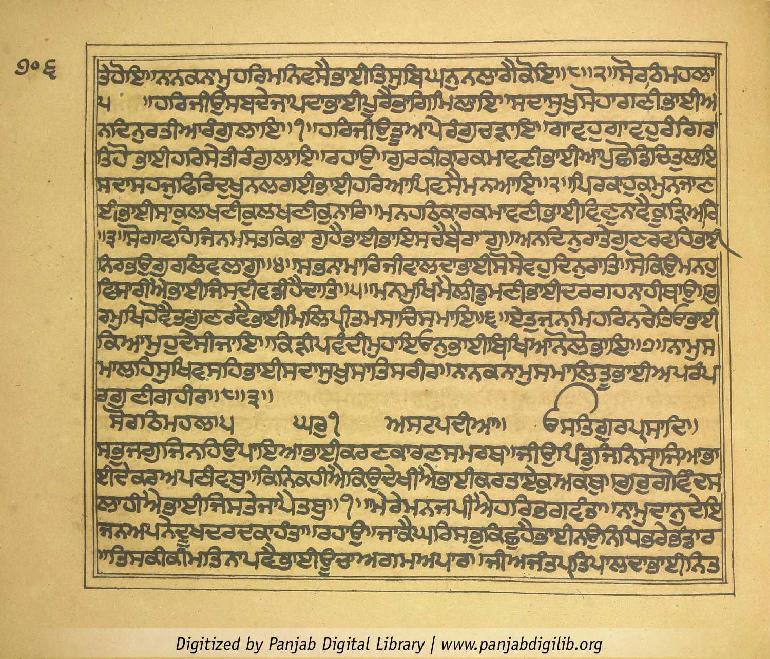 ੭੦੬
ਤੇਹੋਇ॥ਨਾਨਕਨਾਮੁਹਰਿਮਨਿਵਸੈਭਾਈਤਿਸੁਬਿਘਨੁਨਲਾਗੈਕੋਇ॥੮॥੨॥ਸੋਰਠਿਮਹਲਾ
੫ ॥ਹਰਿਜੀਉਸਬਦੇਜਾਪਦਾਭਾਈਪੂਰੈਭਾਗਿਮਿਲਾਇ॥ਸਦਾਸੁਖੁਸੋਹਾਗਣੀਭਾਈਅ
ਨਦਿਨੁਰਤੀਆਰੰਗੁਲਾਇ॥੧॥ਹਰਿਜੀਉਤੂਆਪੇਰੰਗੁਚੜਾਇ॥ਗਾਵਹੁਗਾਵਹੁਰੰਗਿਰਾ
ਤਿਹੋਭਾਈਹਰਿਸੇਤੀਰੰਗੁਲਾਇ॥ਰਹਾਉ॥ਗੁਰਕੀਕਾਰਕਮਾਵਣੀਭਾਈਆਪੁਛੋਡਿਚਿਤੁਲਾਇ
ਸਦਾਸਹਜੁਫਿਰਿਦੁਖੁਨਲਗਈਭਾਈਹਰਿਆਪਿਵਸੈਮਨਿਆਇ॥੨॥ਪਿਰਕਾਹੁਕਮੁਨਜਾਣ
ਈਭਾਈਸਾਕੁਲਖਣੀਕੁਲਖਣੀਕੁਨਾਰਿ॥ਮਨਹਠਿਕਾਰਕਮਾਵਣੀਭਾਈਵਿਣੁਨਾਵੈਕੂੜਿਆਰਿ
॥੩॥ਸੇਗਾਵਹਿਜਿਨਮਸਤਕਿਭਾਗੁਹੈਭਾਈਭਾਇਸਚੈਬੈਰਾਗੁ॥ਅਨਦਿਨੁਰਾਤੇਗੁਣਰਵਹਿਭਾਈ
ਨਿਰਭਉਗੁਰਲਿਵਲਾਗੁ॥੪॥ਸਭਨਾਮਾਰਿਜੀਵਾਲਦਾਭਾਈਸੋਸੇਵਹੁਦਿਨੁਰਾਤਿ॥ਸੋਕਿਉਮਨਹੁ
ਵਿਸਾਰੀਐਭਾਈਜਿਸਦੀਵਡੀਹੈਦਾਤਿ॥੫॥ਮਨਮੁਖਿਮੈਲੀਡੁਮਣੀਭਾਈਦਰਗਹਨਾਹੀਥਾਉ॥ਗੁ
ਰਮੁਖਿਹੋਵੈਤਗੁਣਰਵੈਭਾਈਮਿਲਿਪ੍ਰੀਤਮਸਾਚਿਸਮਾਇ॥੬॥ਏਤੁਜਨਮਿਹਰਿਨਚੇਤਿਓਭਾਈ
ਕਿਆਮੁਹੁਦੇਸੀਜਾਇ॥ਕਿੜੀਪਵੰਦੀਮੁਹਾਇਓਨੁਭਾਈਬਿਖਿਆਨੋਲੋਭਾਇ॥੭॥ਨਾਮੁਸ
ਮਾਲਹਿਸੁਖਿਵਸਹਿਭਾਈਸਦਾਸੁਖੁਸਾਂਤਿਸਰੀਰ॥ਨਾਨਕਨਾਮੁਸਮਾਲਿਤੂਭਾਈਅਪਰੰਪ
ਰਗੁਣੀਗਹੀਰ॥੮॥੩॥
ਸੋਰਠਿਮਹਲਾ੫ ਘਰੁ੧ ਅਸਟਪਦੀਆ॥ ੴਸਤਿਗੁਰਪ੍ਰਸਾਦਿ॥
ਸਭੁਜਗੁਜਿਨਹਿਉਪਾਇਆਭਾਈਕਰਣਕਾਰਣਸਮਰਥੁ॥ਜੀਉਪਿੰਡੁਜਿਨਿਸਾਜਿਆਭਾ
ਈਦੇਕਰਿਅਪਣੀਵਥੁ॥ਕਿਨਿਕਹੀਐਕਿਉਦੇਖੀਐਭਾਈਕਰਤਾਏਕੁਅਕਥੁ॥ਗੁਰੁਗੋਵਿੰਦੁਸ
ਲਾਹੀਐਭਾਈਜਿਸਤੇਜਾਪੈਤਥੁ॥੧॥ਮੇਰੇਮਨਜਪੀਐਹਰਿਭਗਵੰਤਾ॥ਨਾਮੁਦਾਨੁਦੇਇ
ਜਨਅਪਨੇਦੂਖਦਰਦਕਾਹੰਤਾ॥ਰਹਾਉ॥ਜਾਕੈਘਰਿਸਭੁਕਿਛੁਹੈਭਾਈਨਉਨਿਧਿਭਰੇਭੰਡਾਰ
॥ਤਿਸਕੀਕੀਮਤਿਨਾਪਵੈਭਾਈਊਚਾਅਗਮਅਪਾਰ॥ਜੀਅਜੰਤਪ੍ਰਤਿਪਾਲਦਾਭਾਈਨਿਤ
Digitized by Panjab Digital Library | www.panjabdigilib.org